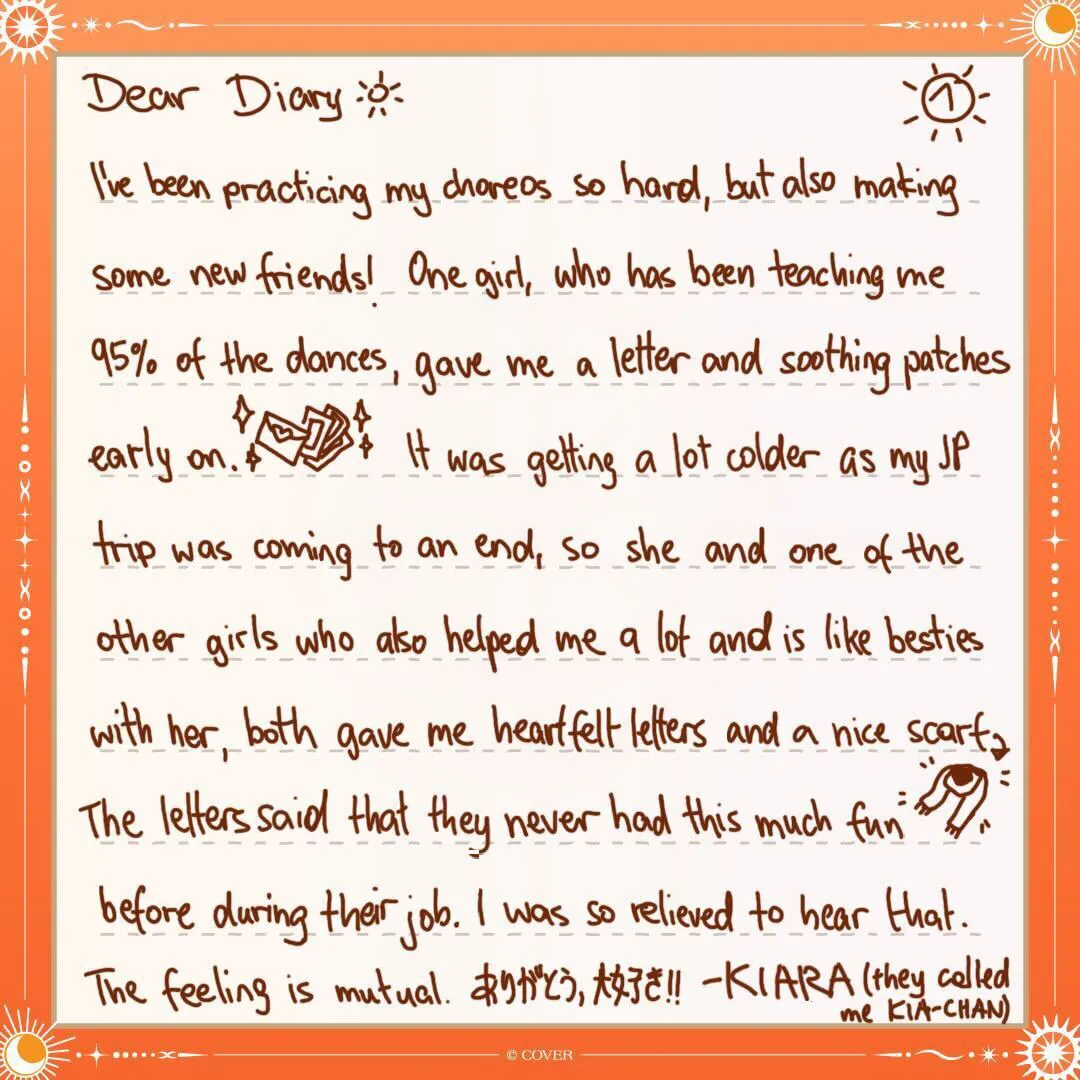 Dear Diary
1
I've been practicing my choreos so hard, but also making
some new friends! One girl, who has been teaching me
95% of the dances, gave me a letter and soothing patches
early on. It was getting a lot colder as my JP
trip was coming to an end, so she and one of the
other girls who also helped me a lot and is like besties
with her, both gave me heartfelt letters and a nice scarf.
The letters said that they never had this much fun
before during their job. I was so relieved to hear that.
The feeling is mutual. ありがとう, 大好き!! -KIARA (they called
me KIA-CHAN)
© COVER